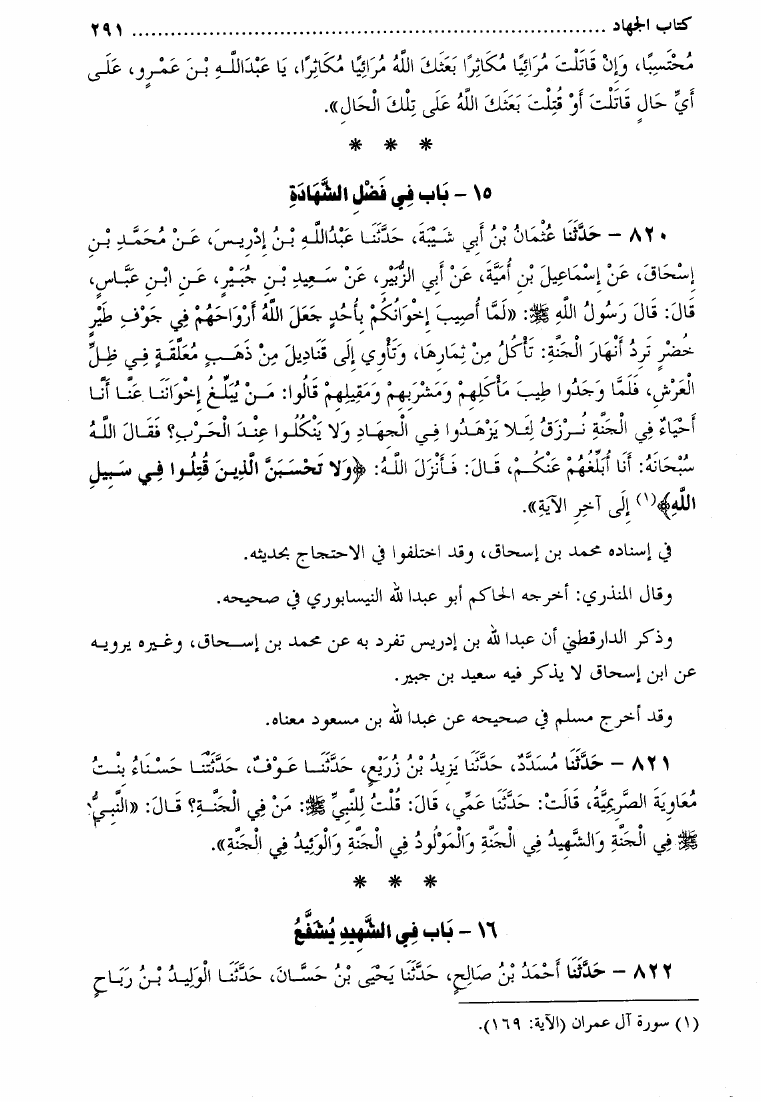 كتاب الجهاد ........................................................................ ٢٩١
مُحْتَسِبًا، وَإِنْ قَاتَلْتَ مُرَائِيًا مُكَاثِرًا بَعَثَكَ اللَّهُ مُرَائِيًا مُكَاثِرًا، يَا عَبْدَاللَّـهِ بْنَ عَمْـرٍو، عَلَـى
أَيِّ حَالٍ قَاتَلْتَ أَوْ قُتِلْتَ بَعَثَكَ اللَّهُ عَلَى تِلْكَ الْحَالِ».
* * *
١٥ - بَاب فِي فَضْلِ الشَّهَادَةِ
٨٢٠ - حَدَّثَنَا عُثْمَانُ بْنُ أَبِي شَـيْبَةَ، حَدَّثَنَـا عَبْدُاللَّـهِ بْـنُ إِدْرِيـسَ، عَـنْ مُحَمَّـدِ بْـنِ
إِسْـحَاقَ، عَنْ إِسْمَاعِيلَ بْنِ أُمَيَّةَ، عَنْ أَبِي الزُّبَيْرِ، عَنْ سَـعِيدِ بْـنِ جُبَـيْرٍ، عَـنِ ابْـنِ عَبَّـاسٍ،
قَالَ: قَالَ رَسُولُ اللَّهِ ﷺ: «لَمَّا أُصِيبَ إِخْوَانُكُمْ بِأُحُدٍ جَعَلَ اللَّهُ أَرْوَاحَهُمْ فِي جَوْفِ طَيْرٍ
خُضْرٍ تَرِدُ أَنْهَارَ الْجَنَّةِ: تَأْكُلُ مِنْ ثِمَارِهَا، وَتَأْوِي إِلَى قَنَادِيلَ مِنْ ذَهَـبٍ مُعَلَّقَـةٍ فِـي ظِـلِّ
الْعَرْشِ، فَلَمَّا وَجَدُوا طِيبَ مَأْكَلِهِمْ وَمَشْرَبِهِمْ وَمَقِيلِهِمْ قَالُوا: مَـنْ يُبَلِّـغُ إِخْوَانَنَـا عَنَّـا أَنَّـا
أَحْيَاءٌ فِي الْجَنَّةِ نُـرْزَقُ لِئَلَّـا يَزْهَـدُوا فِـي الْجِهَادِ وَلَا يَنْكُلُـوا عِنْـدَ الْحَـرْبِ؟ فَقَـالَ اللَّـهُ
سُبْحَانَهُ: أَنَا أُبَلِّغُهُمْ عَنْكُـمْ، قَـالَ: فَـأَنْزَلَ اللَّـهُ: ﴿وَلَا تَحْسَبَنَّ الَّذِيـنَ قُتِلُـوا فِـي سَـبِيلِ
اللَّهِ﴾(١) إِلَى آخِرِ الْآيَةِ».
في إسناده محمد بن إسحاق، وقد اختلفوا في الاحتجاج بحديثه.
وقال المنذري: أخرجه الحاكم أبو عبدا لله النيسابوري في صحيحه.
وذكر الدارقطني أن عبدا لله بن إدريس تفرد به عن محمد بن إسـحاق، وغـيره يرويـه
عن ابن إسحاق لا يذكر فيه سعيد بن جبير.
وقد أخرج مسلم في صحيحه عن عبدا لله بن مسعود معناه.
٨٢١ - حَدَّثَنَا مُسَدَّدٌ، حَدَّثَنَا يَزِيدُ بْنُ زُرَيْعٍ، حَدَّثَنَـا عَـوْفٌ، حَدَّثَتْنَـا حَسْـنَاءُ بِنْـتُ
مُعَاوِيَةَ الصَّرِيمِيَّةُ، قَالَتْ: حَدَّثَنَا عَمِّي، قَالَ: قُلْتُ لِلنَّبِيِّ ﷺ: مَنْ فِي الْجَنَّـةِ؟ قَـالَ: «النَّبِـيُّ
ﷺ فِي الْجَنَّةِ وَالشَّهِيدُ فِي الْجَنَّةِ وَالْمَوْلُودُ فِي الْجَنَّةِ وَالْوَئِيدُ فِي الْجَنَّةِ».
* * *
١٦ - بَاب فِي الشَّهِيدِ يُشَفَّعُ
٨٢٢ - حَدَّثَنَا أَحْمَدُ بْنُ صَالِحٍ، حَدَّثَنَا يَحْيَى بْنُ حَسَّـانَ، حَدَّثَنَـا الْوَلِيـدُ بْـنُ رَبَـاحٍ
(١) سورة آل عمران (الآية: ١٦٩).